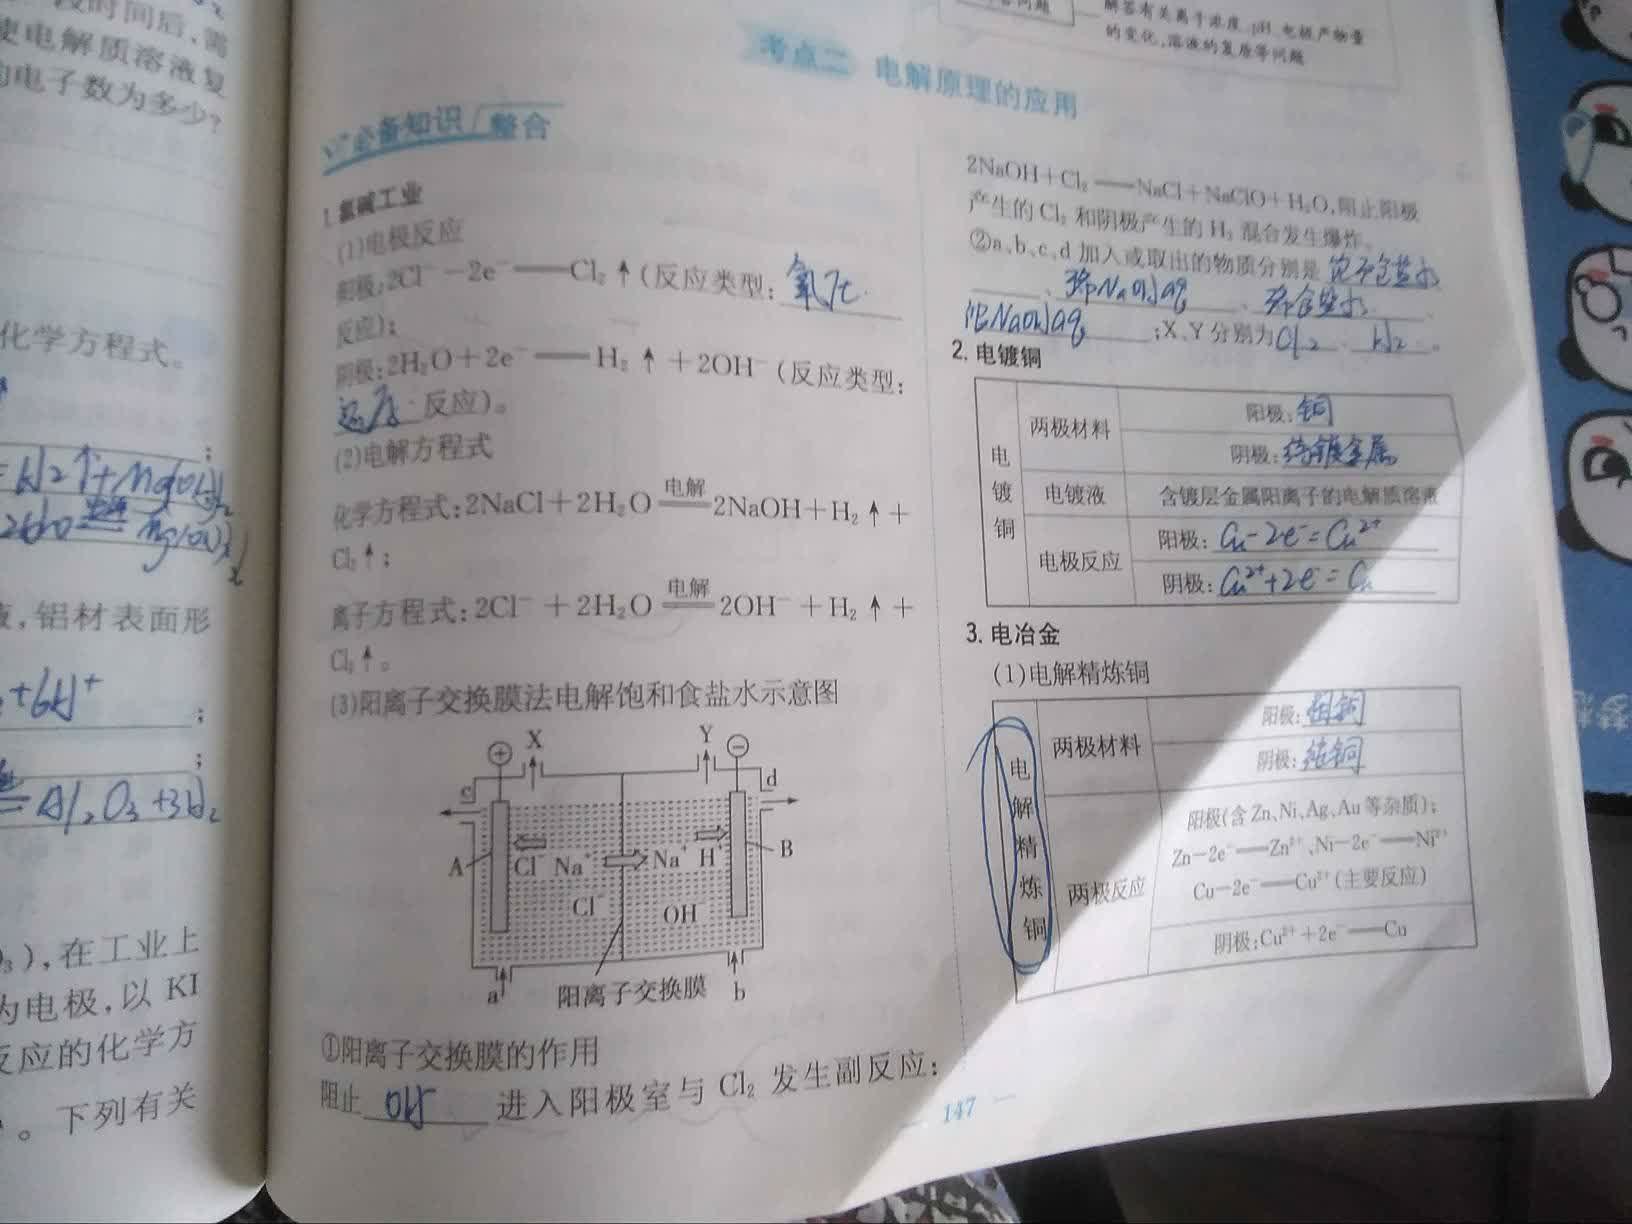 段时间后,需
使电解质溶液复
的电子数为多少?
化学方程式。
;
液,铝材表面形
+6H⁺
;
;
Al₂O₃+3H₂
),在工业上
为电极,以 KI
反应的化学方
。下列有关
解答有关离子浓度、pH、电极产物量
的变化,溶液的复原等问题
考点二 电解原理的应用
必备知识 整合
1.氯碱工业
(1)电极反应
阳极:2Cl⁻-2e⁻══Cl₂↑(反应类型:氧化
反应);
阴极:2H₂O+2e⁻══H₂↑+2OH⁻(反应类型:
还原 反应)。
(2)电解方程式
化学方程式:2NaCl+2H₂O 电解══ 2NaOH+H₂↑+
Cl₂↑;
离子方程式:2Cl⁻+2H₂O 电解══ 2OH⁻+H₂↑+
Cl₂↑。
(3)阳离子交换膜法电解饱和食盐水示意图
X Y
+ −
c d
A Cl⁻ Na⁺ Na⁺ H⁺ B
Cl⁻ OH⁻
a 阳离子交换膜 b
①阳离子交换膜的作用
阻止 OH⁻ 进入阳极室与 Cl₂ 发生副反应:
2NaOH+Cl₂══NaCl+NaClO+H₂O,阻止阳极
产生的 Cl₂ 和阴极产生的 H₂ 混合发生爆炸。
②a、b、c、d 加入或取出的物质分别是 饱和食盐水
、稀NaOHaq 、稀食盐水 、
浓NaOHaq ;X、Y 分别为 Cl₂ 、H₂ 。
2.电镀铜
电镀铜
两极材料 阳极:铜
阴极:待镀金属
电镀液 含镀层金属阳离子的电解质溶液
电极反应 阳极:Cu-2e⁻=Cu²⁺
阴极:Cu²⁺+2e⁻=Cu
3.电冶金
(1)电解精炼铜
电解精炼铜
两极材料 阳极:粗铜
阴极:纯铜
两极反应 阳极(含 Zn、Ni、Ag、Au 等杂质):
Zn-2e⁻══Zn²⁺、Ni-2e⁻══Ni²⁺
Cu-2e⁻══Cu²⁺(主要反应)
阴极:Cu²⁺+2e⁻══Cu
147